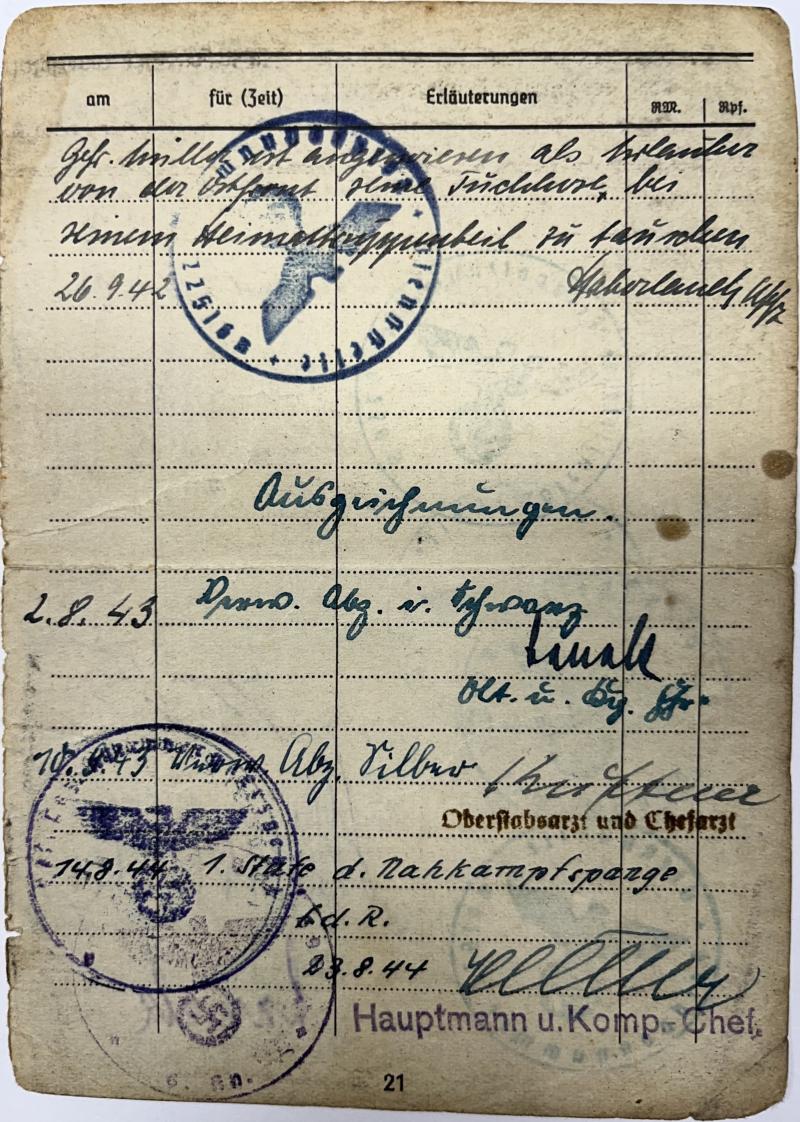 am für (Zeit) Erläuterungen RM. Rpf.
Gefr. Müller ist angewiesen als Urlauber
von der Ostfront seine Tuchhose, bei
seinem Heimattruppenteil zu tauschen
26.9.42
Auszeichnungen.
2.8.43 Verw. Abz. i. Schwarz
Olt. u.
43 Verw. Abz. Silber
Oberstabsarzt und Chefarzt
14.8.44 1. Stufe d. Nahkampfspange
F.d.R.
23.8.44
Hauptmann u. Komp.-Chef.
21